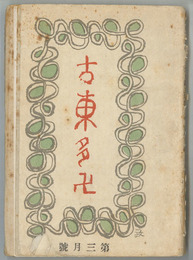 古東多卍
第三月號